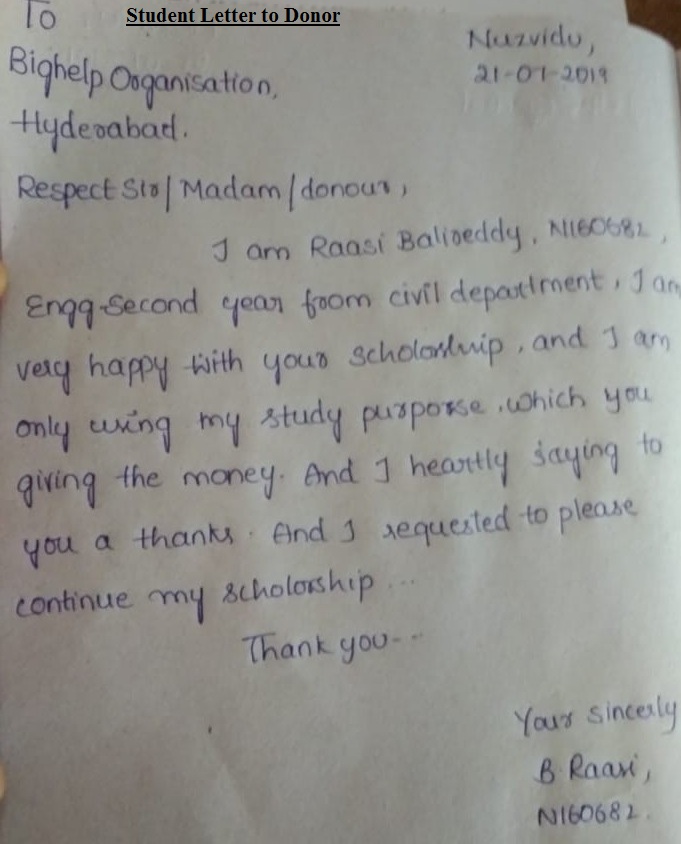 To
Student Letter to Donor
Nuzvidu,
21-01-2019
Bighelp Organisation,
Hyderabad.
Respect Sir/ Madam/donour,
I am Raasi Balireddy, N160682,
Engg-Second year from civil department, I am
very happy with your scholorship, and I am
only using my study purporse, which you
giving the money. And I heartly saying to
you a thanks. And I requested to please
continue my scholorship...
Thank you---
Your sincerly
B. Raasi,
N160682.